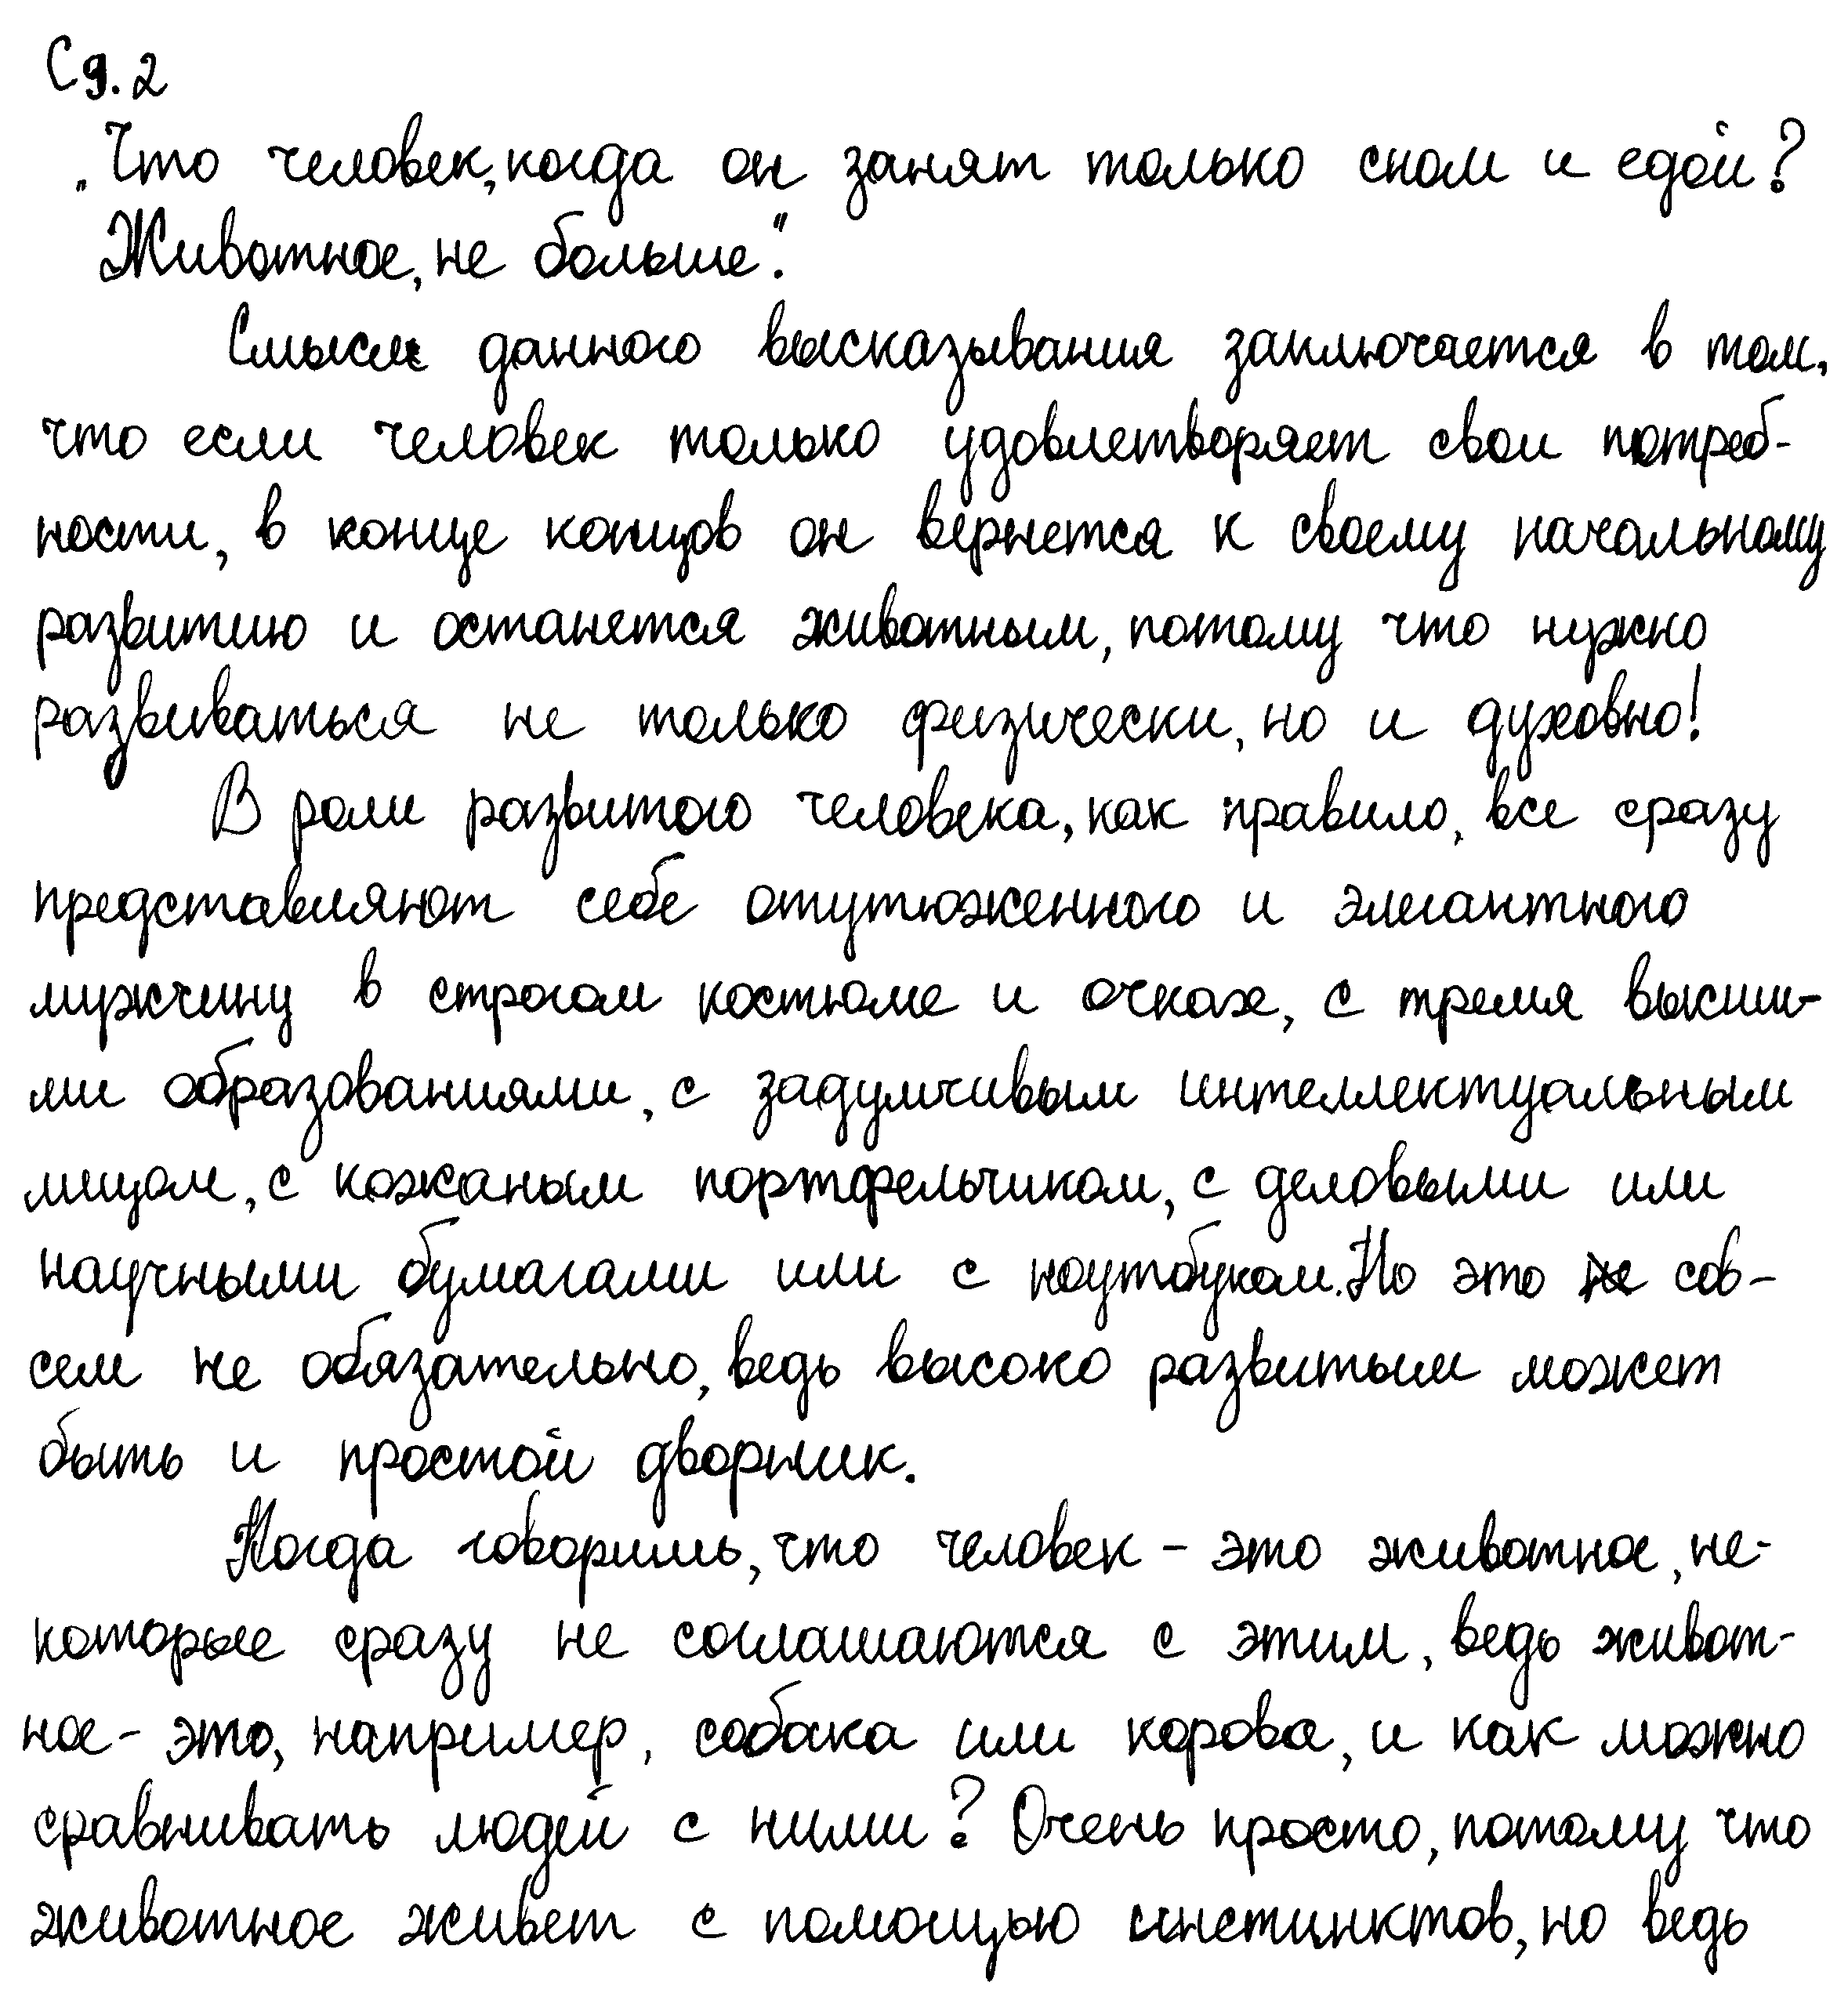 С9.2
„Что человек, когда он занят только сном и едой?
Животное, не больше".
Смысл данного высказывания заключается в том,
что если человек только удовлетворяет свои потреб-
ности, в конце концов он вернется к своему начальному
развитию и останется животным, потому что нужно
развиваться не только физически, но и духовно!
В роли развитого человека, как правило, все сразу
представляют себе отутюженного и элегантного
мужчину в строгом костюме и очках, с тремя высши-
ми образованиями, с задумчивым интеллектуальным
лицом, с кожаным портфельчиком, с деловыми или
научными бумагами или с ноутбуком. Но это сов-
сем не обязательно, ведь высоко развитым может
быть и простой дворник.
Когда говоришь, что человек - это животное, не-
которые сразу не соглашаются с этим, ведь живот-
ное - это, например, собака или корова, и как можно
сравнивать людей с ними? Очень просто, потому что
животное живет с помощью инстинктов, но ведь